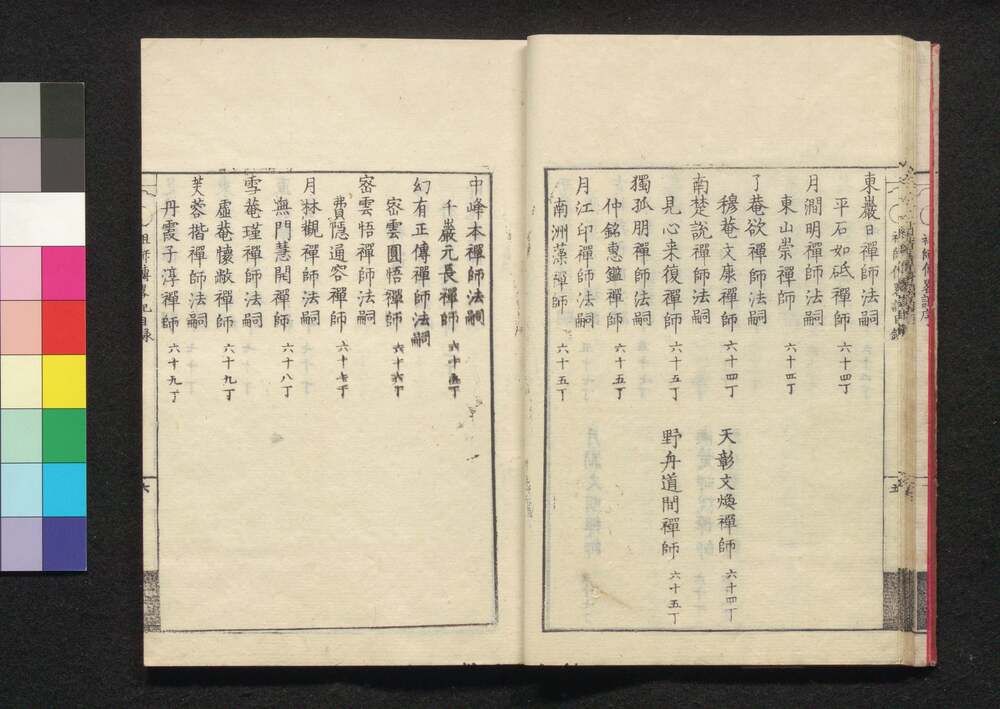 東巖日禪師法嗣
平石如砥禪師 六十四丁
月㵎明禪師法嗣
東山崇禪師 六十四丁
了菴欲禪師法嗣
穆菴文康禪師 六十四丁 天彰文煥禪師 六十四丁
南楚說禪師法嗣
見心来復禪師 六十五丁 野舟道間禪師 六十五丁
獨孤朋禪師法嗣
仲銘惠鑑禪師 六十五丁
月江印禪師法嗣
南洲藻禪師 六十五丁
五
中峰本禪師法嗣
千巖元長禪師 六十五丁
幻有正傳禪師法嗣
宻雲圓悟禪師 六十六丁
宻雲悟禪師法嗣
費隱通容禪師 六十七丁
月林觀禪師法嗣
無門慧開禪師 六十八丁
雪菴瑾禪師法嗣
虛菴懷敞禪師 六十九丁
芙蓉揩禪師法嗣
丹霞子淳禪師 六十九丁
六